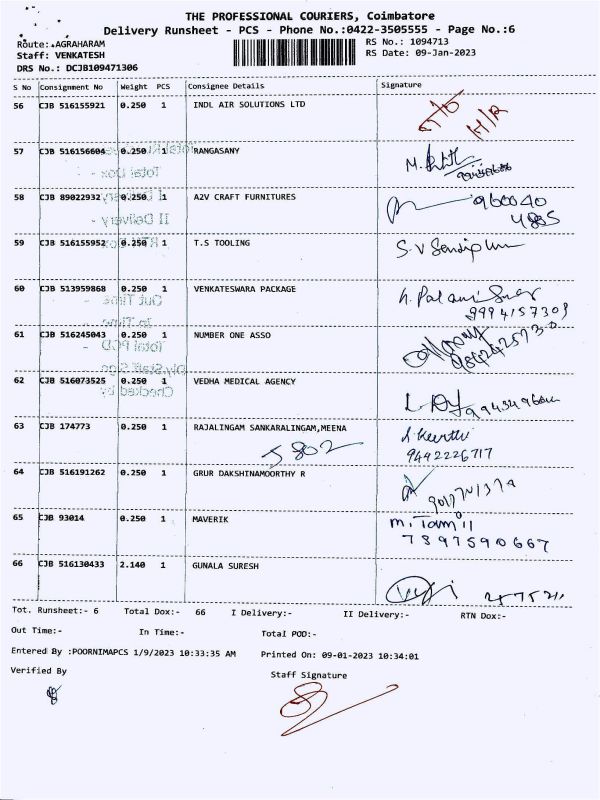 THE PROFESSIONAL COURIERS, Coimbatore
Delivery Runsheet - PCS - Phone No.:0422-3505555 - Page No.:6
Route: AGRAHARAM
RS No.: 1094713
Staff: VENKATESH
RS Date: 09-Jan-2023
DRS No.: DCJB109471306
S No Consignment No Weight PCS Consignee Details Signature
56 CJB 516155921 0.250 1 INDL AIR SOLUTIONS LTD
H/R
57 CJB 516156604 0.250 1 RANGASANY
58 CJB 89022932 0.250 1 A2V CRAFT FURNITURES
960040
4885
59 CJB 516155952 0.250 1 T.S TOOLING
60 CJB 513959868 0.250 1 VENKATESWARA PACKAGE
9994157309
61 CJB 516245043 0.250 1 NUMBER ONE ASSO
62 CJB 516073525 0.250 1 VEDHA MEDICAL AGENCY
63 CJB 174773 0.250 1 RAJALINGAM SANKARALINGAM,MEENA
5802
9442226717
64 CJB 516191262 0.250 1 GRUR DAKSHINAMOORTHY R
65 CJB 93014 0.250 1 MAVERIK
7397590667
66 CJB 516130433 2.140 1 GUNALA SURESH
Tot. Runsheet:- 6 Total Dox:- 66 I Delivery:- II Delivery:- RTN Dox:-
Out Time:- In Time:- Total POD:-
Entered By :POORNIMAPCS 1/9/2023 10:33:35 AM Printed On: 09-01-2023 10:34:01
Verified By
Staff Signature